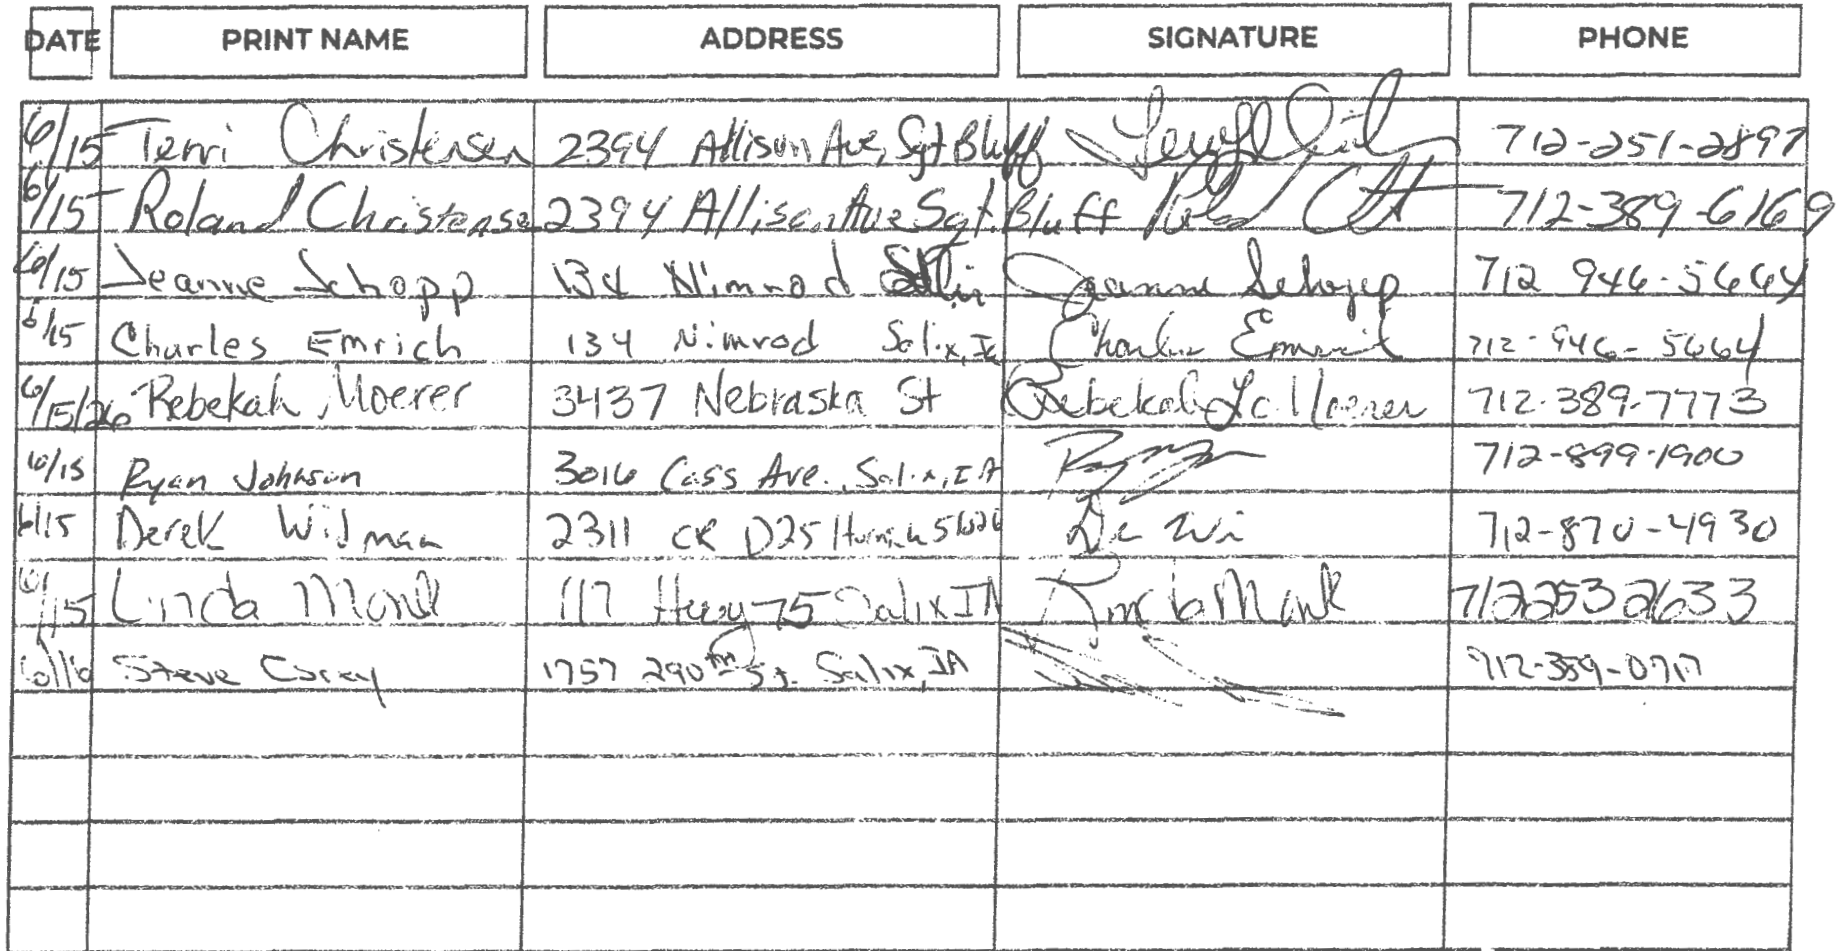 DATE PRINT NAME ADDRESS SIGNATURE PHONE
6/15 Terri Christensen 2394 Allison Ave, Sgt Bluff 712-251-2897
6/15 Roland Christensen 2394 Allison Ave Sgt. Bluff 712-389-6169
6/15 Jeanne Schopp 134 Nimrod Salix Jeanne Schopp 712 946-5664
6/15 Charles Emrich 134 Nimrod Salix, Ia Charles Emrich 712-946-5664
6/15/26 Rebekah Moerer 3437 Nebraska St Rebekah Moerer 712-389-7773
6/15 Ryan Johnson 3016 Cass Ave., Salix, IA 712-899-1900
6/15 Derek Widman 2311 CR D25 712-870-4930
6/15 Linda Monk 117 Hwy 75 Salix IA Linda Monk 712 253 2633
6/16 Steve 1757 290th St. Salix, IA